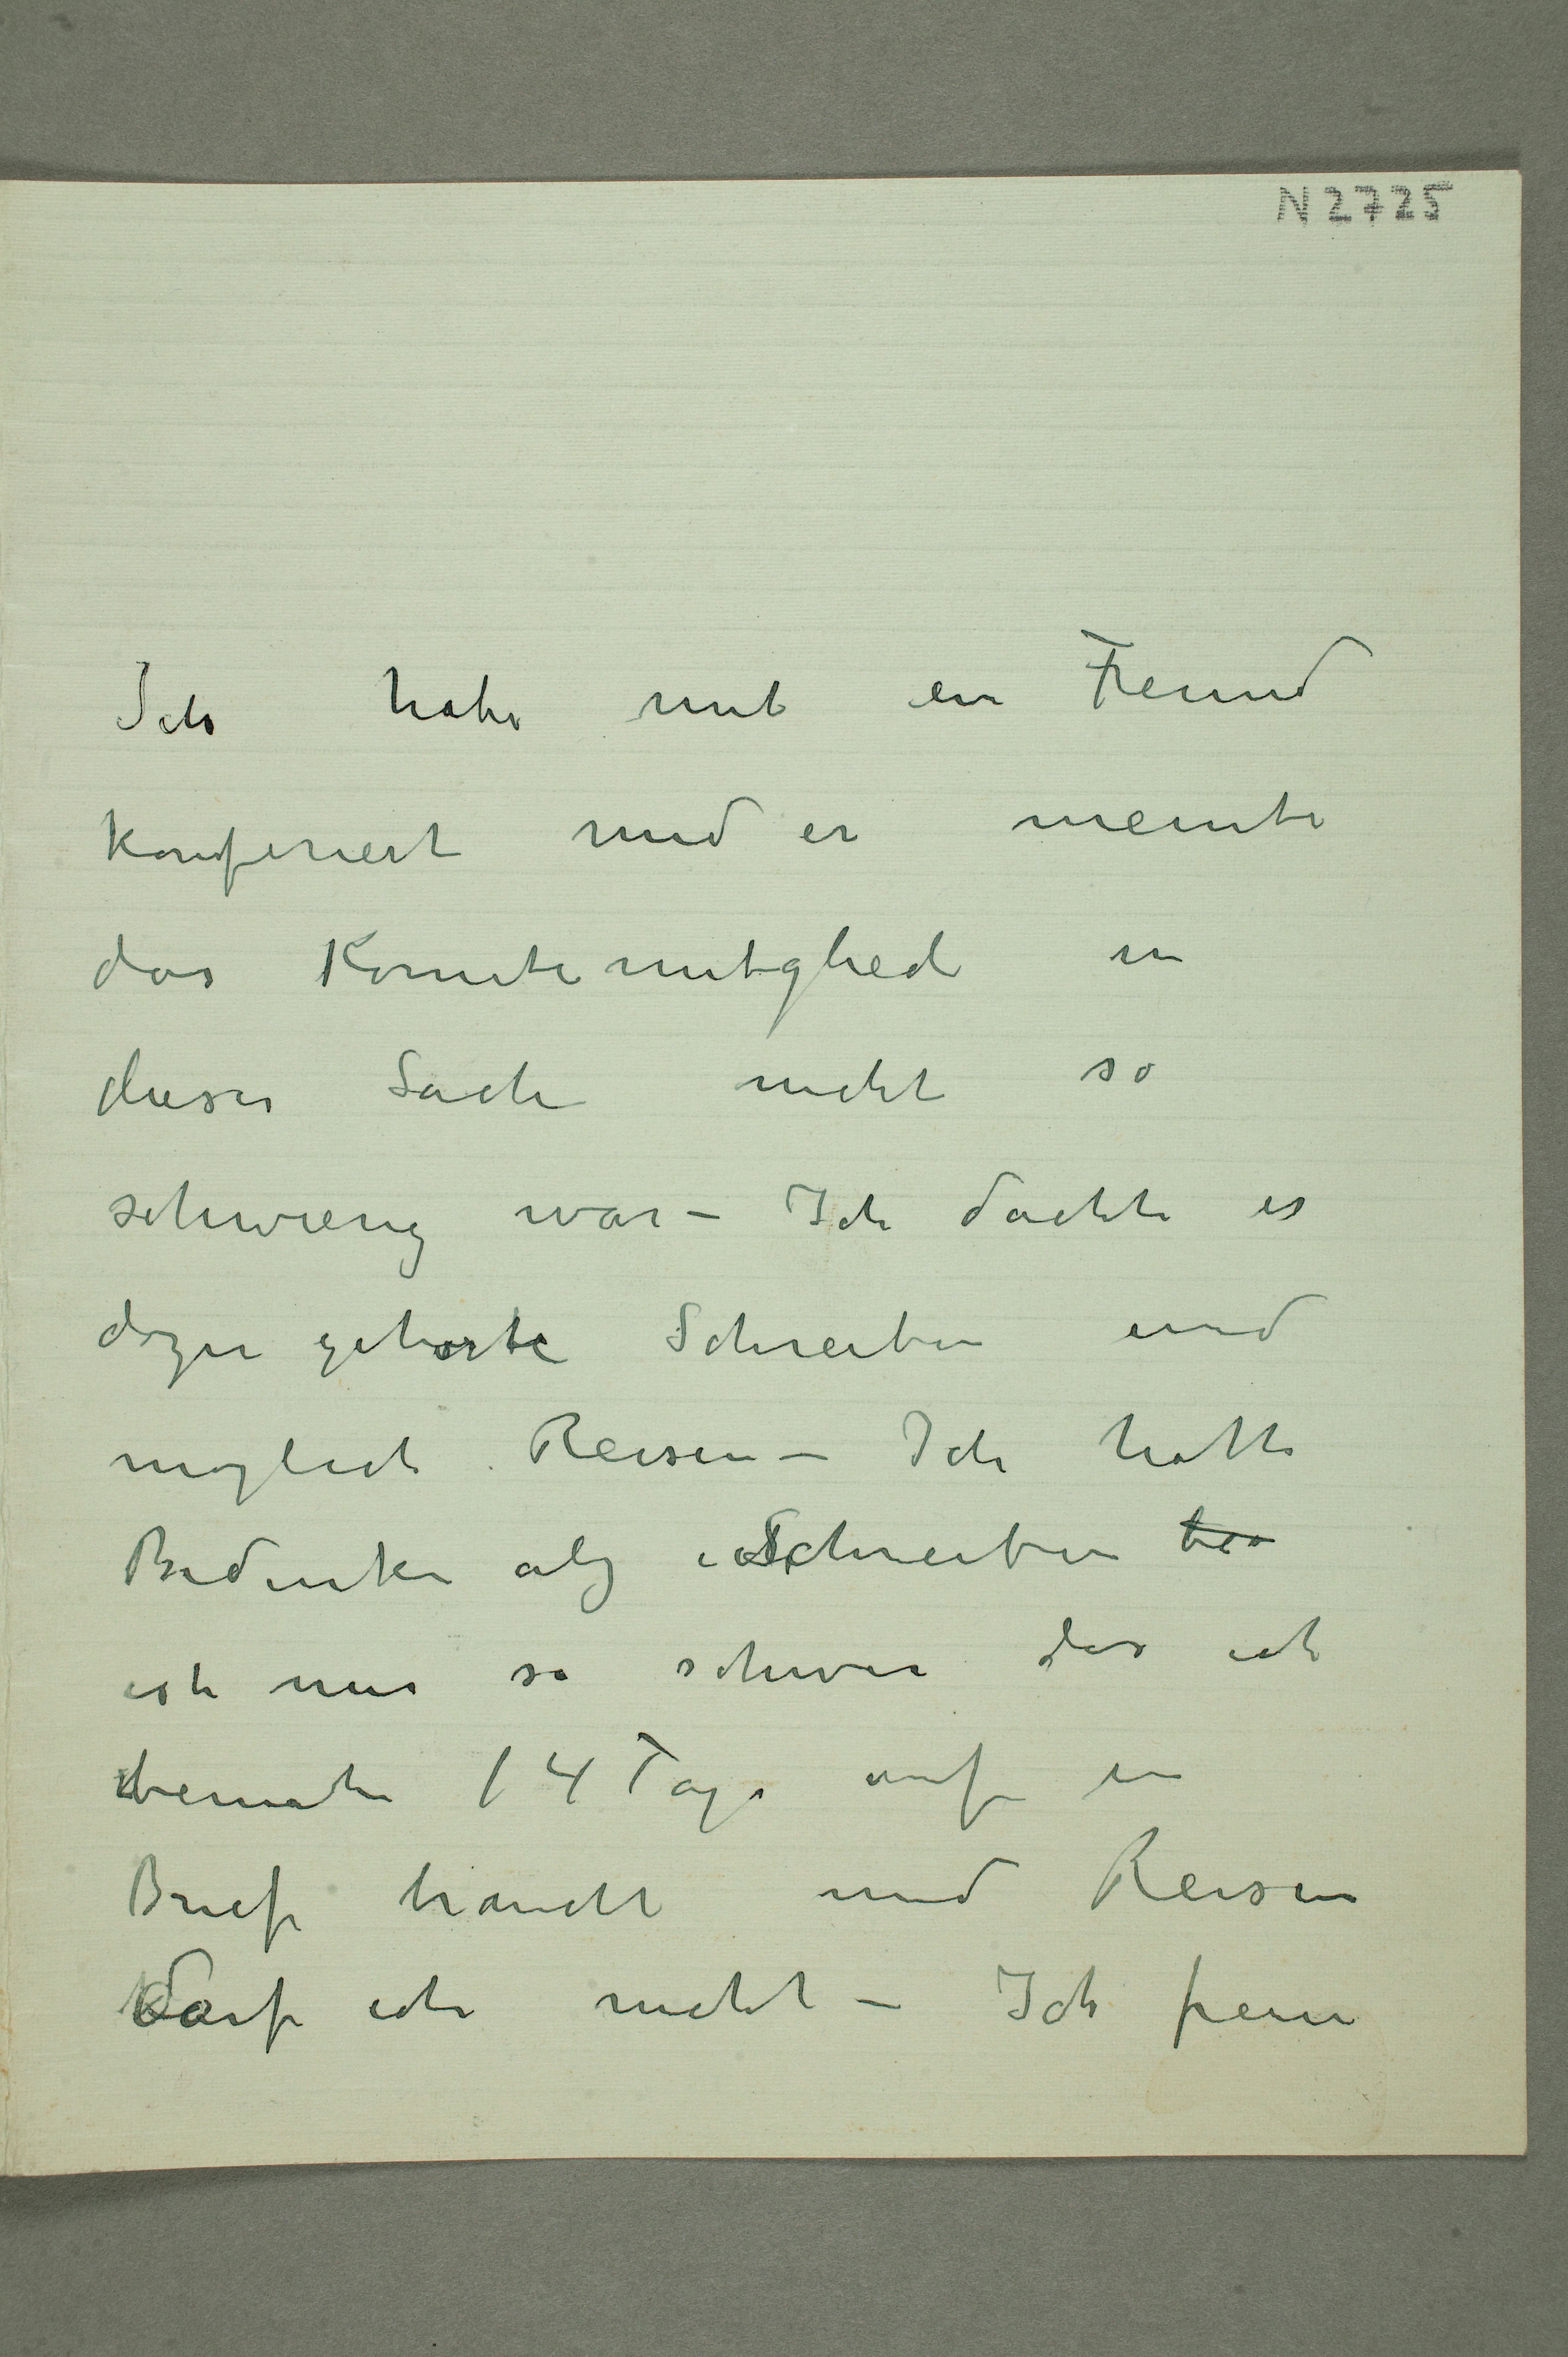 N 2725
Ich habe mit ein Freund
konferiert und er meinte
das Komitemitglied in
dieser Sache nicht so
schwierig war – Ich dachte es
dazu gehorte Schreiben und
moglich Reisen – Ich hatte
Bedenken Schreiben
ist mir so schwer das ich
beinahe 14 Tage auf ein
Brief braucht und Reisen
darf ich nicht – Ich freue